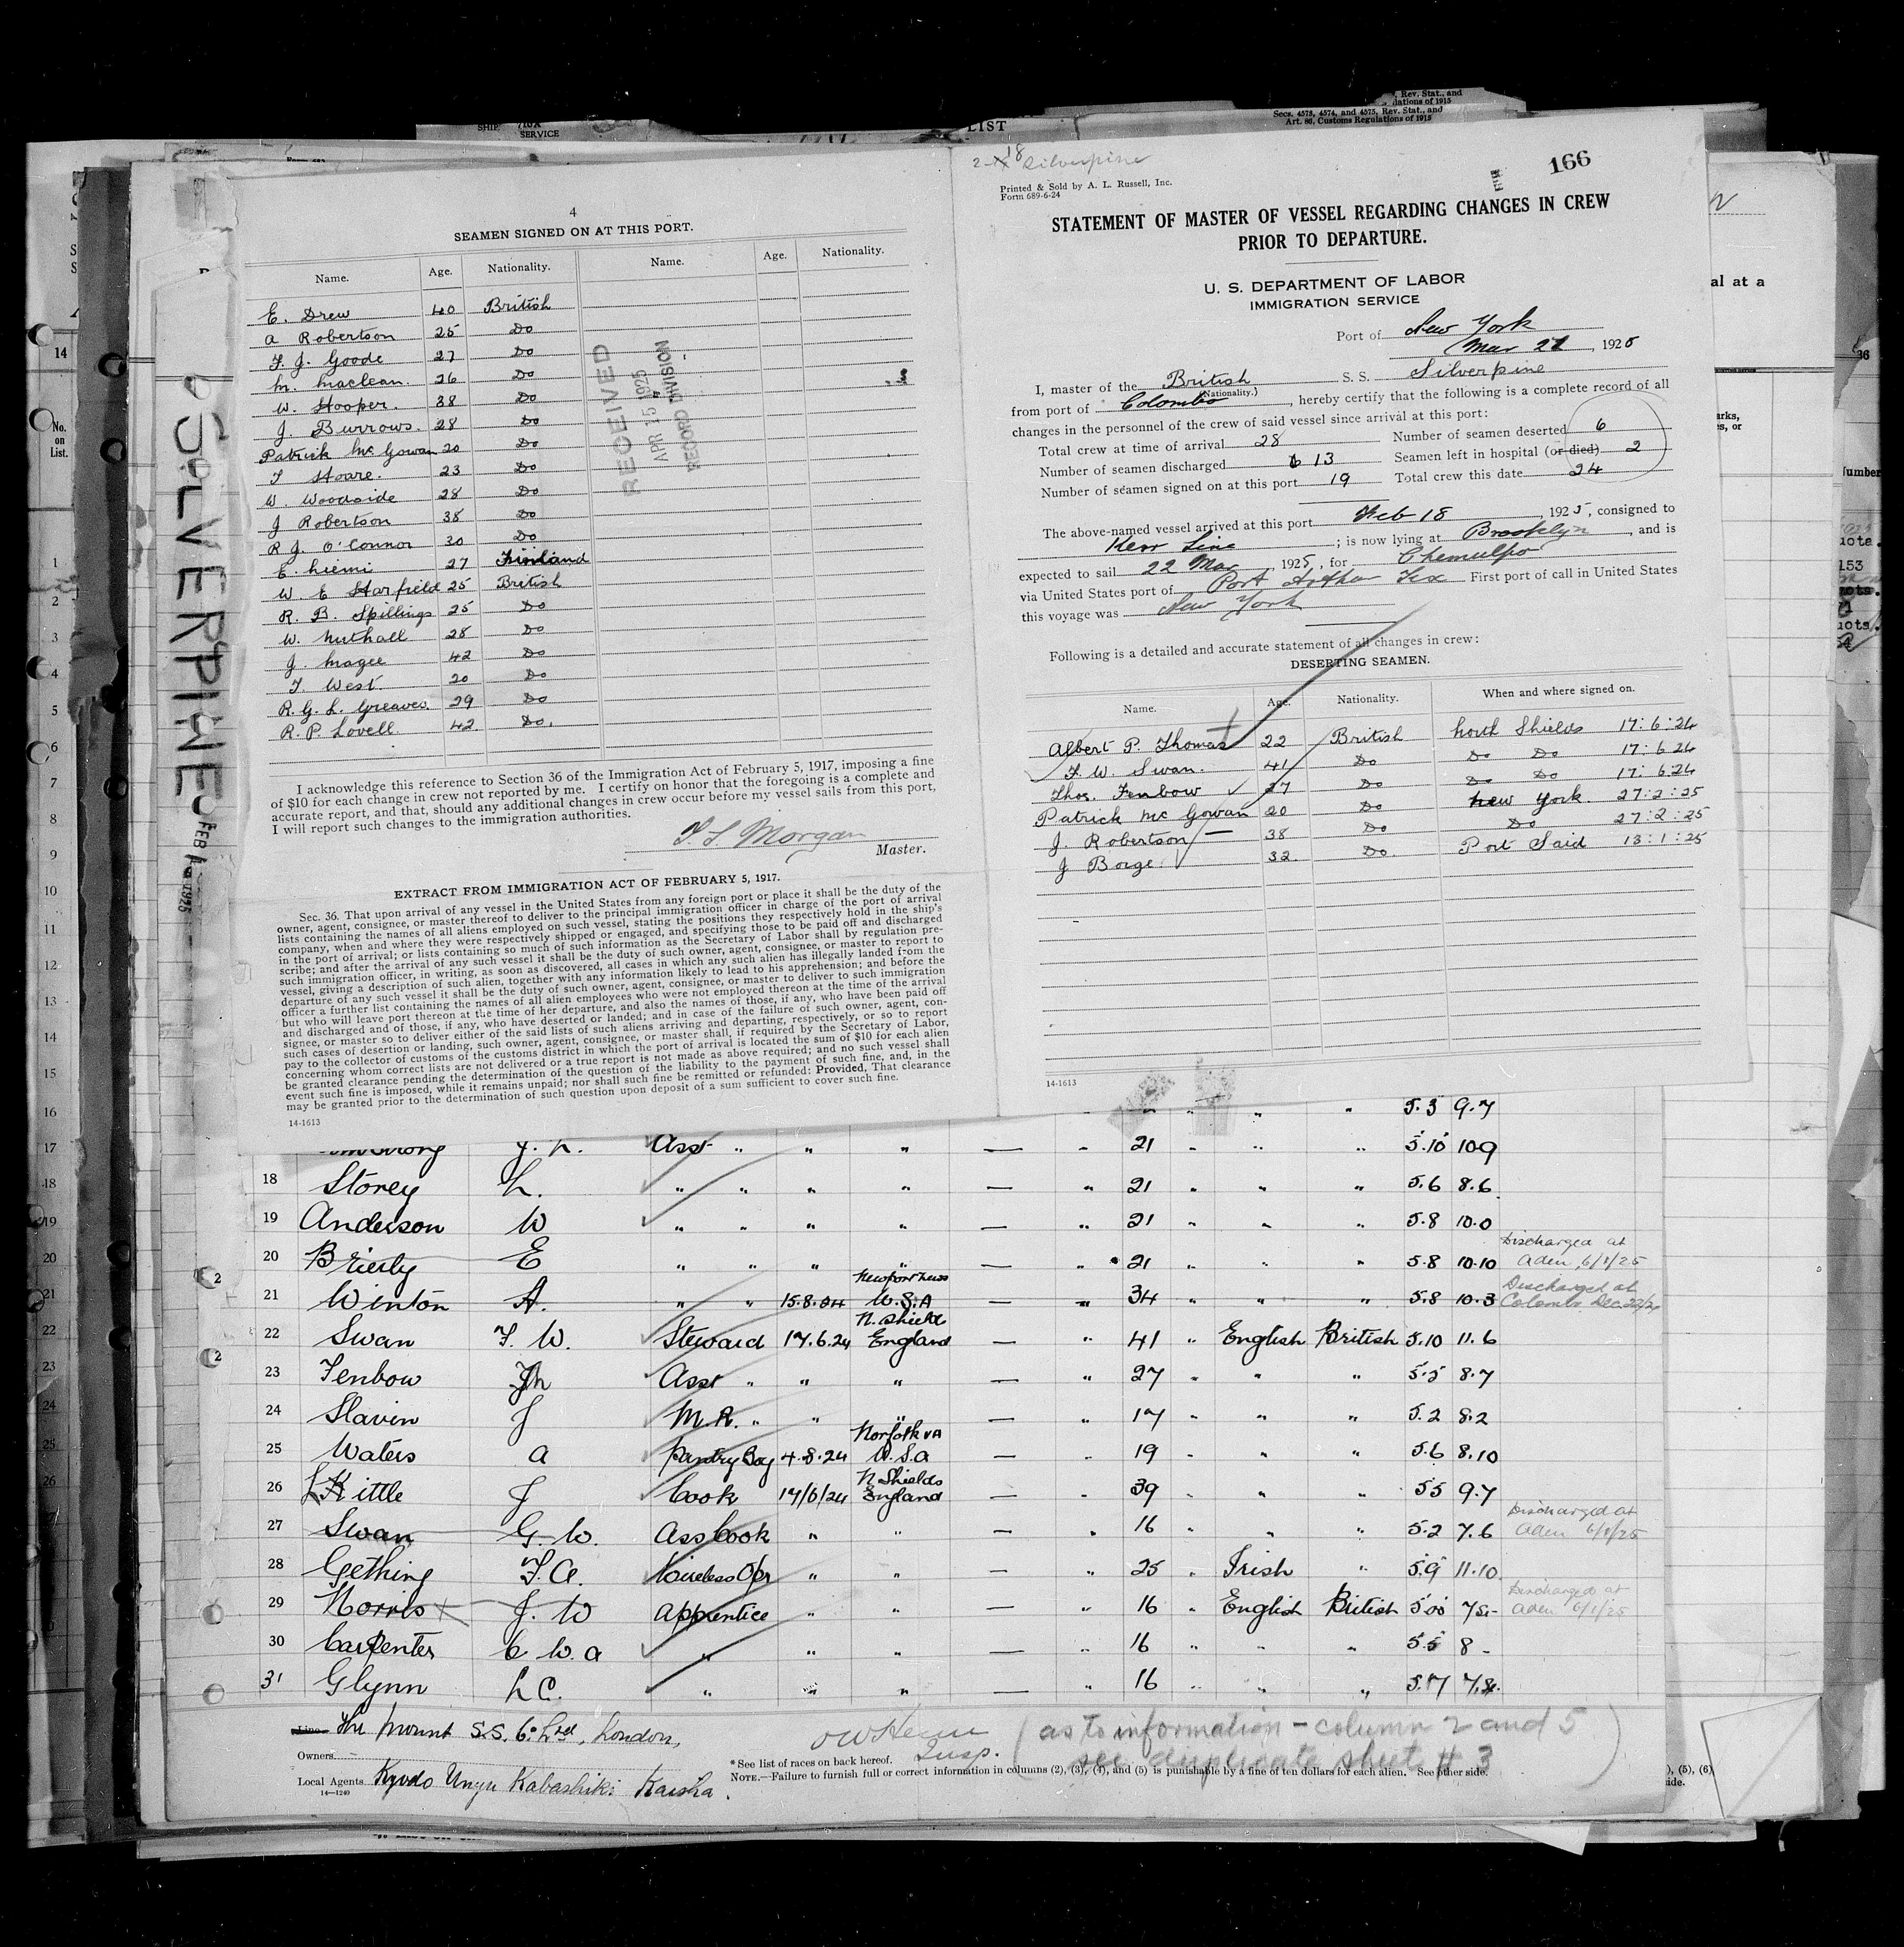 SHIP,
SERVICE
LIST
Rev. Stat., and
dations of 1915
Secs. 4573, 4574, and 4575, Rev. Stat., and
Art. 86, Customs Regulations of 1915
SS SILVERPINE
FEB 1925
4
SEAMEN SIGNED ON AT THIS PORT.
Name. Age. Nationality. Name. Age. Nationality.
E. Drew 40 British
A Robertson 25 Do
F. J. Goode 27 Do
M. Maclean. 26 Do
W. Hooper. 38 Do
J. Burrows. 28 Do
Patrick Mc Gowan 20 Do
T Hoare. 23 Do
W. Woodside 28 Do
J Robertson 38 Do
R J. O'Connor 30 Do
E. Liemi 27 Finland
W. E Harfield 25 British
R. B. Spillings 25 Do
W. Nuthall 28 Do
J. Magee 42 Do
T. West. 20 Do
R. G. L. Greaves. 29 Do
R. P. Lovell 42 Do.
RECEIVED
APR 15 1925
RECORD DIVISION
I acknowledge this reference to Section 36 of the Immigration Act of February 5, 1917, imposing a fine
of $10 for each change in crew not reported by me. I certify on honor that the foregoing is a complete and
accurate report, and that, should any additional changes in crew occur before my vessel sails from this port,
I will report such changes to the immigration authorities.
Morgan
Master.
EXTRACT FROM IMMIGRATION ACT OF FEBRUARY 5, 1917.
Sec. 36. That upon arrival of any vessel in the United States from any foreign port or place it shall be the duty of the
owner, agent, consignee, or master thereof to deliver to the principal immigration officer in charge of the port of arrival
lists containing the names of all aliens employed on such vessel, stating the positions they respectively hold in the ship's
company, when and where they were respectively shipped or engaged, and specifying those to be paid off and discharged
in the port of arrival; or lists containing so much of such information as the Secretary of Labor shall by regulation pre-
scribe; and after the arrival of any such vessel it shall be the duty of such owner, agent, consignee, or master to report to
such immigration officer, in writing, as soon as discovered, all cases in which any such alien has illegally landed from the
vessel, giving a description of such alien, together with any information likely to lead to his apprehension; and before the
departure of any such vessel it shall be the duty of such owner, agent, consignee, or master to deliver to such immigration
officer a further list containing the names of all alien employees who were not employed thereon at the time of the arrival
but who will leave port thereon at the time of her departure, and also the names of those, if any, who have been paid off
and discharged and of those, if any, who have deserted or landed; and in case of the failure of such owner, agent, con-
signee, or master so to deliver either of the said lists of such aliens arriving and departing, respectively, or so to report
such cases of desertion or landing, such owner, agent, consignee, or master shall, if required by the Secretary of Labor,
pay to the collector of customs of the customs district in which the port of arrival is located the sum of $10 for each alien
concerning whom correct lists are not delivered or a true report is not made as above required; and no such vessel shall
be granted clearance pending the determination of the question of the liability to the payment of such fine, and, in the
event such fine is imposed, while it remains unpaid; nor shall such fine be remitted or refunded: Provided, That clearance
may be granted prior to the determination of such question upon deposit of a sum sufficient to cover such fine.
14-1613
18 Silverpine
166
Printed & Sold by A. L. Russell, Inc.
Form 689-6-24
STATEMENT OF MASTER OF VESSEL REGARDING CHANGES IN CREW
PRIOR TO DEPARTURE.
U. S. DEPARTMENT OF LABOR
IMMIGRATION SERVICE
Port of New York
Mar 21, 1925
I, master of the British S. S. Silverpine
(Nationality.)
from port of Colombo, hereby certify that the following is a complete record of all
changes in the personnel of the crew of said vessel since arrival at this port:
Total crew at time of arrival 28 Number of seamen deserted 6
Number of seamen discharged 13 Seamen left in hospital (or died) 2
Number of seamen signed on at this port 19 Total crew this date 24
The above-named vessel arrived at this port Feb 18, 1925, consigned to
Kerr Line; is now lying at Brooklyn, and is
expected to sail 22 Mar, 1925, for Chemulpo
via United States port of Port Arthur Tex First port of call in United States
this voyage was New York
Following is a detailed and accurate statement of all changes in crew:
DESERTING SEAMEN.
Name. Age. Nationality. When and where signed on.
Albert P. Thomas 22 British North Shields 17:6:24
F. W. Swan. 41 Do Do Do 17:6 24
Thos. Fenbow 27 Do Do Do 17:6 24
Patrick Mc Gowan 20 Do New York. 27:2:25
J. Robertson 38 Do Do 27:2:25
J Borge. 32 Do Port Said 13:1:25
14-1613
16 5.3 9.7
17 J. L. Asst " " " — " 21 " " " 5.10 10.9
18 Storey L. " " " " — " 21 " " " 5.6 8.6
19 Anderson W " " " " — " 21 " " " 5.8 10.0
20 Brierly E " " " " — " 21 " " " 5.8 10.10 Discharged at Aden, 6/1/25
21 Winton A. " " 15.8.24 Newport News U.S.A — " 34 " " " 5.8 10.3 Discharged at Colombo Dec 22/24
22 Swan F. W. Steward 17.6.24 N. Shields England — " 41 " English British 5.10 11.6
23 Fenbow Th Asst " " " — " 27 " " " 5.5 8.7
24 Slavin J M.R. " " " — " 17 " " " 5.2 8.2
25 Waters A Pantry Boy 4.8.24 Norfolk VA U.S.A — " 19 " " " 5.6 8.10
26 Kittle J Cook 17/6/24 N Shields England — " 39 " " " 5 5 9.7
27 Swan G. W. Ass Cook " " — " 16 " " " 5.2 7.6 Discharged at Aden 6/1/25
28 Gething F. A. Wireless Opr " " — " 25 " Irish " 5.9 11.10
29 Norris J. W Apprentice " " — " 16 " English British 5.00 Discharged at Aden 6/1/25
30 Carpenter C. W. A " " " — " 16 " " " 5.5 8 -
31 Glynn L C. " " " — " 16 " " " 5.7
Line The Mount S.S. Co. Ltd, London,
Owners
Local Agents Kyodo Unyu Kabashiki Kaisha.
14—1240
Insp.
(as to information - column 2 and 5
see duplicate sheet # 3)
* See list of races on back hereof.
NOTE.—Failure to furnish full or correct information in columns (2), (3), (4), and (5) is punishable by a fine of ten dollars for each alien. See other side.
), (5), (6)
ide.
No.
on
List.
14
1
2
3
4
5
6
7
8
9
10
11
12
13
14
15
16
17
18
19
20
21
22
23
24
25
26
al at a
36